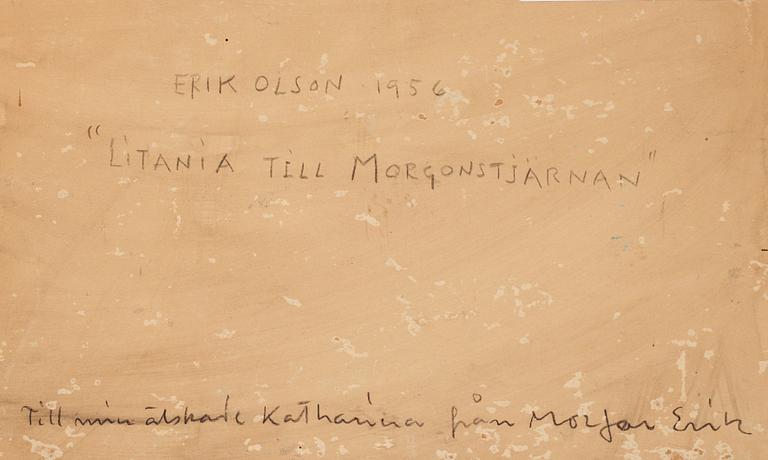 ERIK OLSON 1956
"LITANIA TILL MORGONSTJÄRNAN"
Till min älskade Katharina från Morfar Erik